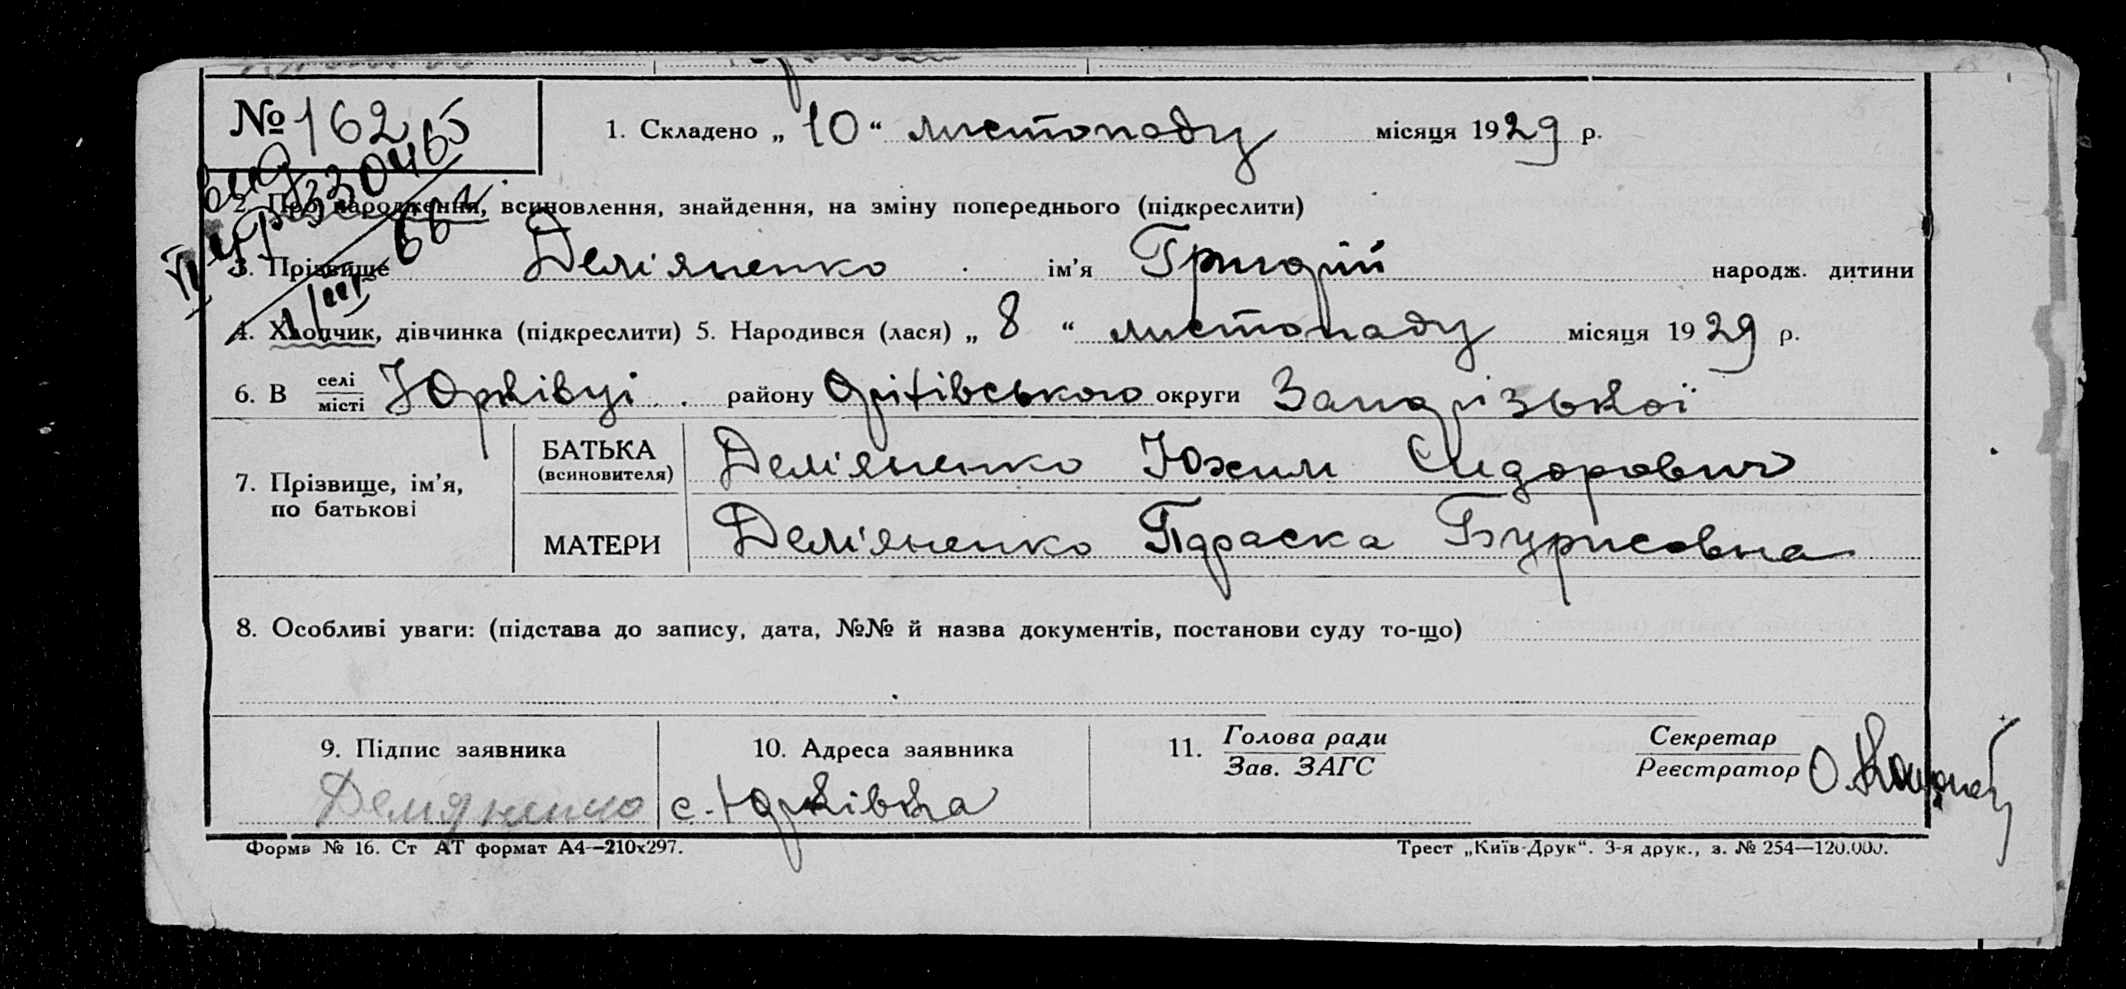 № 162
1. Складено „10“ листопаду місяця 1929 р.
2. Про народження, всиновлення, знайдення, на зміну попереднього (підкреслити)
3. Прізвище Дем'яненко ім'я Григорій народж. дитини
4. Хлопчик, дівчинка (підкреслити) 5. Народився (лася) „8“ листопаду місяця 1929 р.
6. В селі місті Юрківці району Оріхівського округи Запорізької
7. Прізвище, ім'я, по батькові
БАТЬКА (всиновителя) Дем'яненко Юхим Сидорович
МАТЕРИ Дем'яненко Підраска Бурисовна
8. Особливі уваги: (підстава до запису, дата, №№ й назва документів, постанови суду то-що)
9. Підпис заявника
Демяненко
10. Адреса заявника
с. Юрківка
11. Голова ради
Зав. ЗАГС
Секретар
Реєстратор
Форма № 16. Ст АТ формат А4—210х297.
Трест „Київ-Друк“. 3-я друк., з. № 254—120.000.